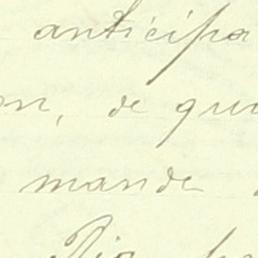 anticipa
on, de qui
mande
Rio